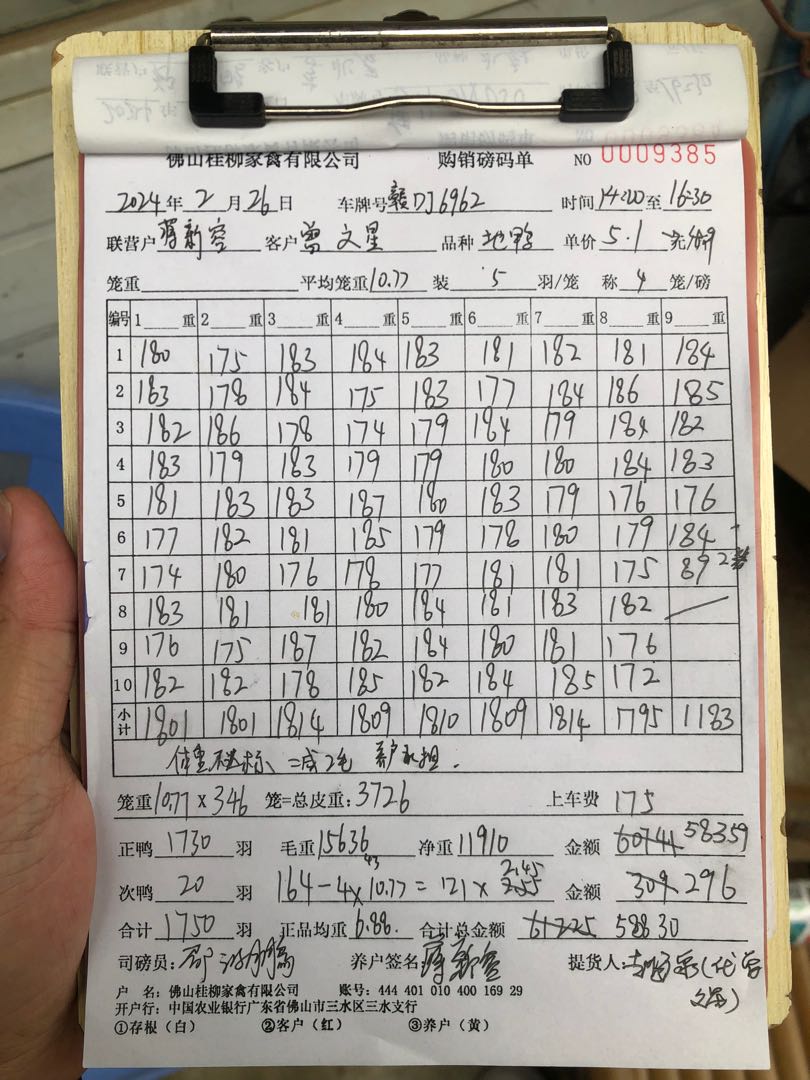 佛山桂柳家禽有限公司 购销磅码单 NO 0009385
2024年 2月26日 车牌号 赣DJ6962 时间 14:00至16:30
联营户 蒋新容 客户 曾文星 品种 地鸭 单价 5.1
笼重 平均笼重 10.77 装 5 羽/笼 称 4 笼/磅
编号 1 重 2 重 3 重 4 重 5 重 6 重 7 重 8 重 9 重
1 180 175 183 184 183 181 182 181 184
2 183 178 184 175 183 177 184 186 185
3 182 186 178 174 179 184 179 184 182
4 183 179 183 179 179 180 180 184 183
5 181 183 183 187 180 183 179 176 176
6 177 182 181 185 179 178 180 179 184
7 174 180 176 178 177 181 181 175 89 2
8 183 181 181 180 184 181 183 182
9 176 175 187 182 184 180 181 176
10 182 182 178 185 182 184 185 172
小计 1801 1801 1814 1809 1810 1809 1814 1795 1183
体重不达标、二成2毛 养户承担.
笼重 10.77 x 346 笼=总皮重: 3726 上车费 175
正鸭 1730 羽 毛重 15636 净重 11910 金额 60741 58359
次鸭 20 羽 164 - 4 x 10.77 = 121 x 2.55 2.45 金额 309 296
43
合计 1750 羽 正品均重 6.88. 合计总金额 61225 58830
司磅员: 养户签名: 蒋新容 提货人: (代曾文星)
户 名: 佛山桂柳家禽有限公司 账号: 444 401 010 400 169 29
开户行: 中国农业银行广东省佛山市三水区三水支行
①存根(白) ②客户(红) ③养户(黄)